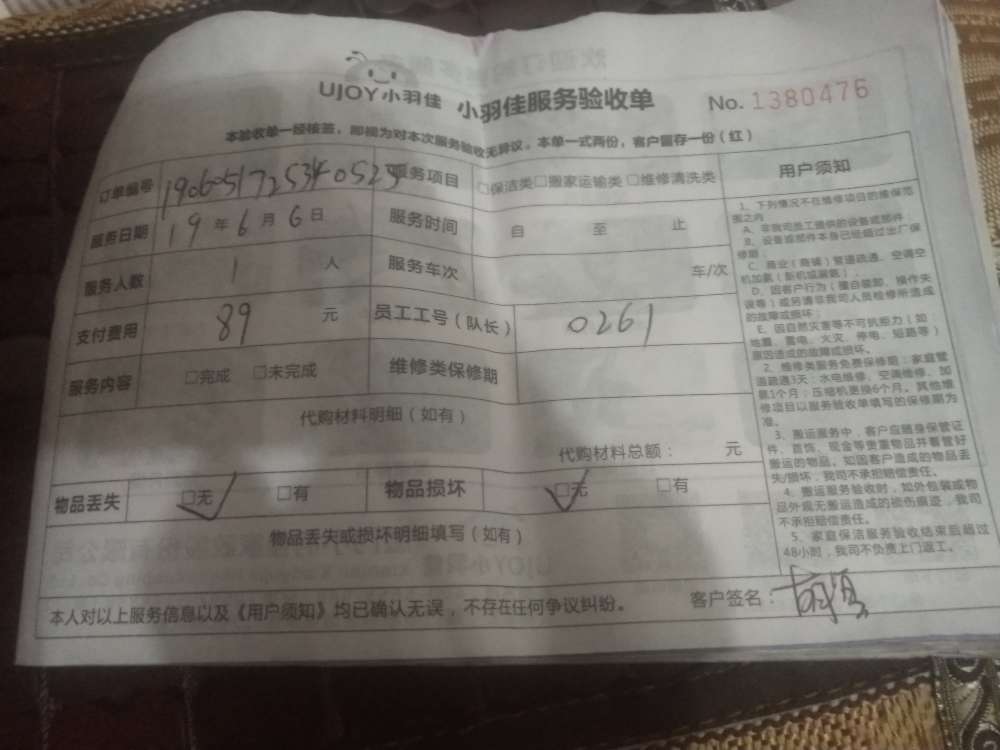 UJOY小羽佳 小羽佳服务验收单 No. 1380476
本验收单一经核签，即视为对本次服务验收无异议，本单一式两份，客户留存一份（红）
订单编号 服务项目 □保洁类□搬家运输类□维修清洗类
服务日期 19年6月6日 服务时间 自 至 止
服务人数 1 人 服务车次 车/次
支付费用 89 元 员工工号（队长） 0261
服务内容 □完成 □未完成 维修类保修期
代购材料明细（如有）
代购材料总额： 元
物品丢失 □无 □有 物品损坏 □无 □有
物品丢失或损坏明细填写（如有）
本人对以上服务信息以及《用户须知》均已确认无误，不存在任何争议纠纷。 客户签名：
用户须知
1、下列情况不在维修项目的维保范
围之内
A、非我司员工提供的设备或部件
B、设备或部件本身已经超过出厂保
修期；
C、商业（商铺）管道疏通、空调空
机加氨（新机或漏氨）；
D、因客户行为（擅自装卸、操作失
误等）或另请非我司人员检修所造成
的故障或损坏；
E、因自然灾害等不可抗拒力（如
地震、雷电、火灾、停电、短路等）
原因造成的故障或损坏。
2、维修类服务免费保修期：家庭管
道疏通3天；水电维修、空调维修、加
氨1个月；压缩机更换6个月。其他维
修项目以服务验收单填写的保修期为
准。
3、搬运服务中，客户应随身保管证
件、首饰、现金等贵重物品并看管好
搬运的物品，如因客户造成的物品丢
失/损坏，我司不承担赔偿责任。
4、搬运服务验收时，如外包装或物
品外观无搬运造成的损伤痕迹，我司
不承担赔偿责任。
5、家庭保洁服务验收结束后超过
48小时，我司不负责上门返工。